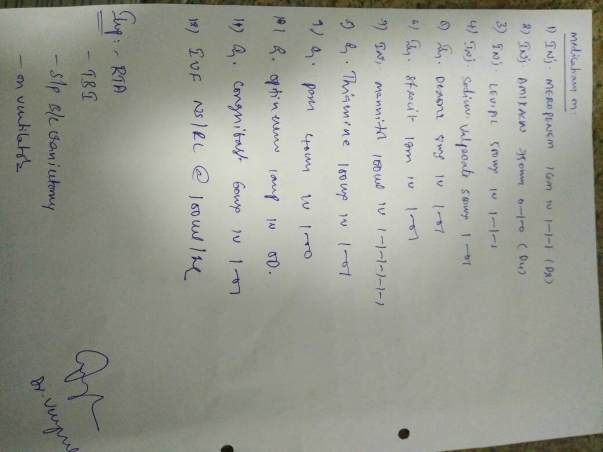 medications:
1) INJ MEROPENEM 1GM IV 1-1-1 (D2)
2) INJ AMIKACIN 750mg 0-1-0 (D4)
3) INJ LEVIPIL 500mg IV 1-1-1
4) INJ Sodium Valproate 500mg 1-01
5) Inj. Dexona 8mg IV 1-01
6) Inj. 1gm IV 1-01
7) INJ mannitol 100ml IV 1-1-1-1-1
8) Inj. Thiamine 100mg IV 1-01
9) Inj. pan 40mg IV 1-00
10) Inj. optineuron 1amp IV OD.
11) Inj. 60mg IV 1-01
12) IVF NS/RL @ 100ml/hr
Imp:- RTA
- TBI
- S/p B/L Craniectomy
- on ventilator
Dr.